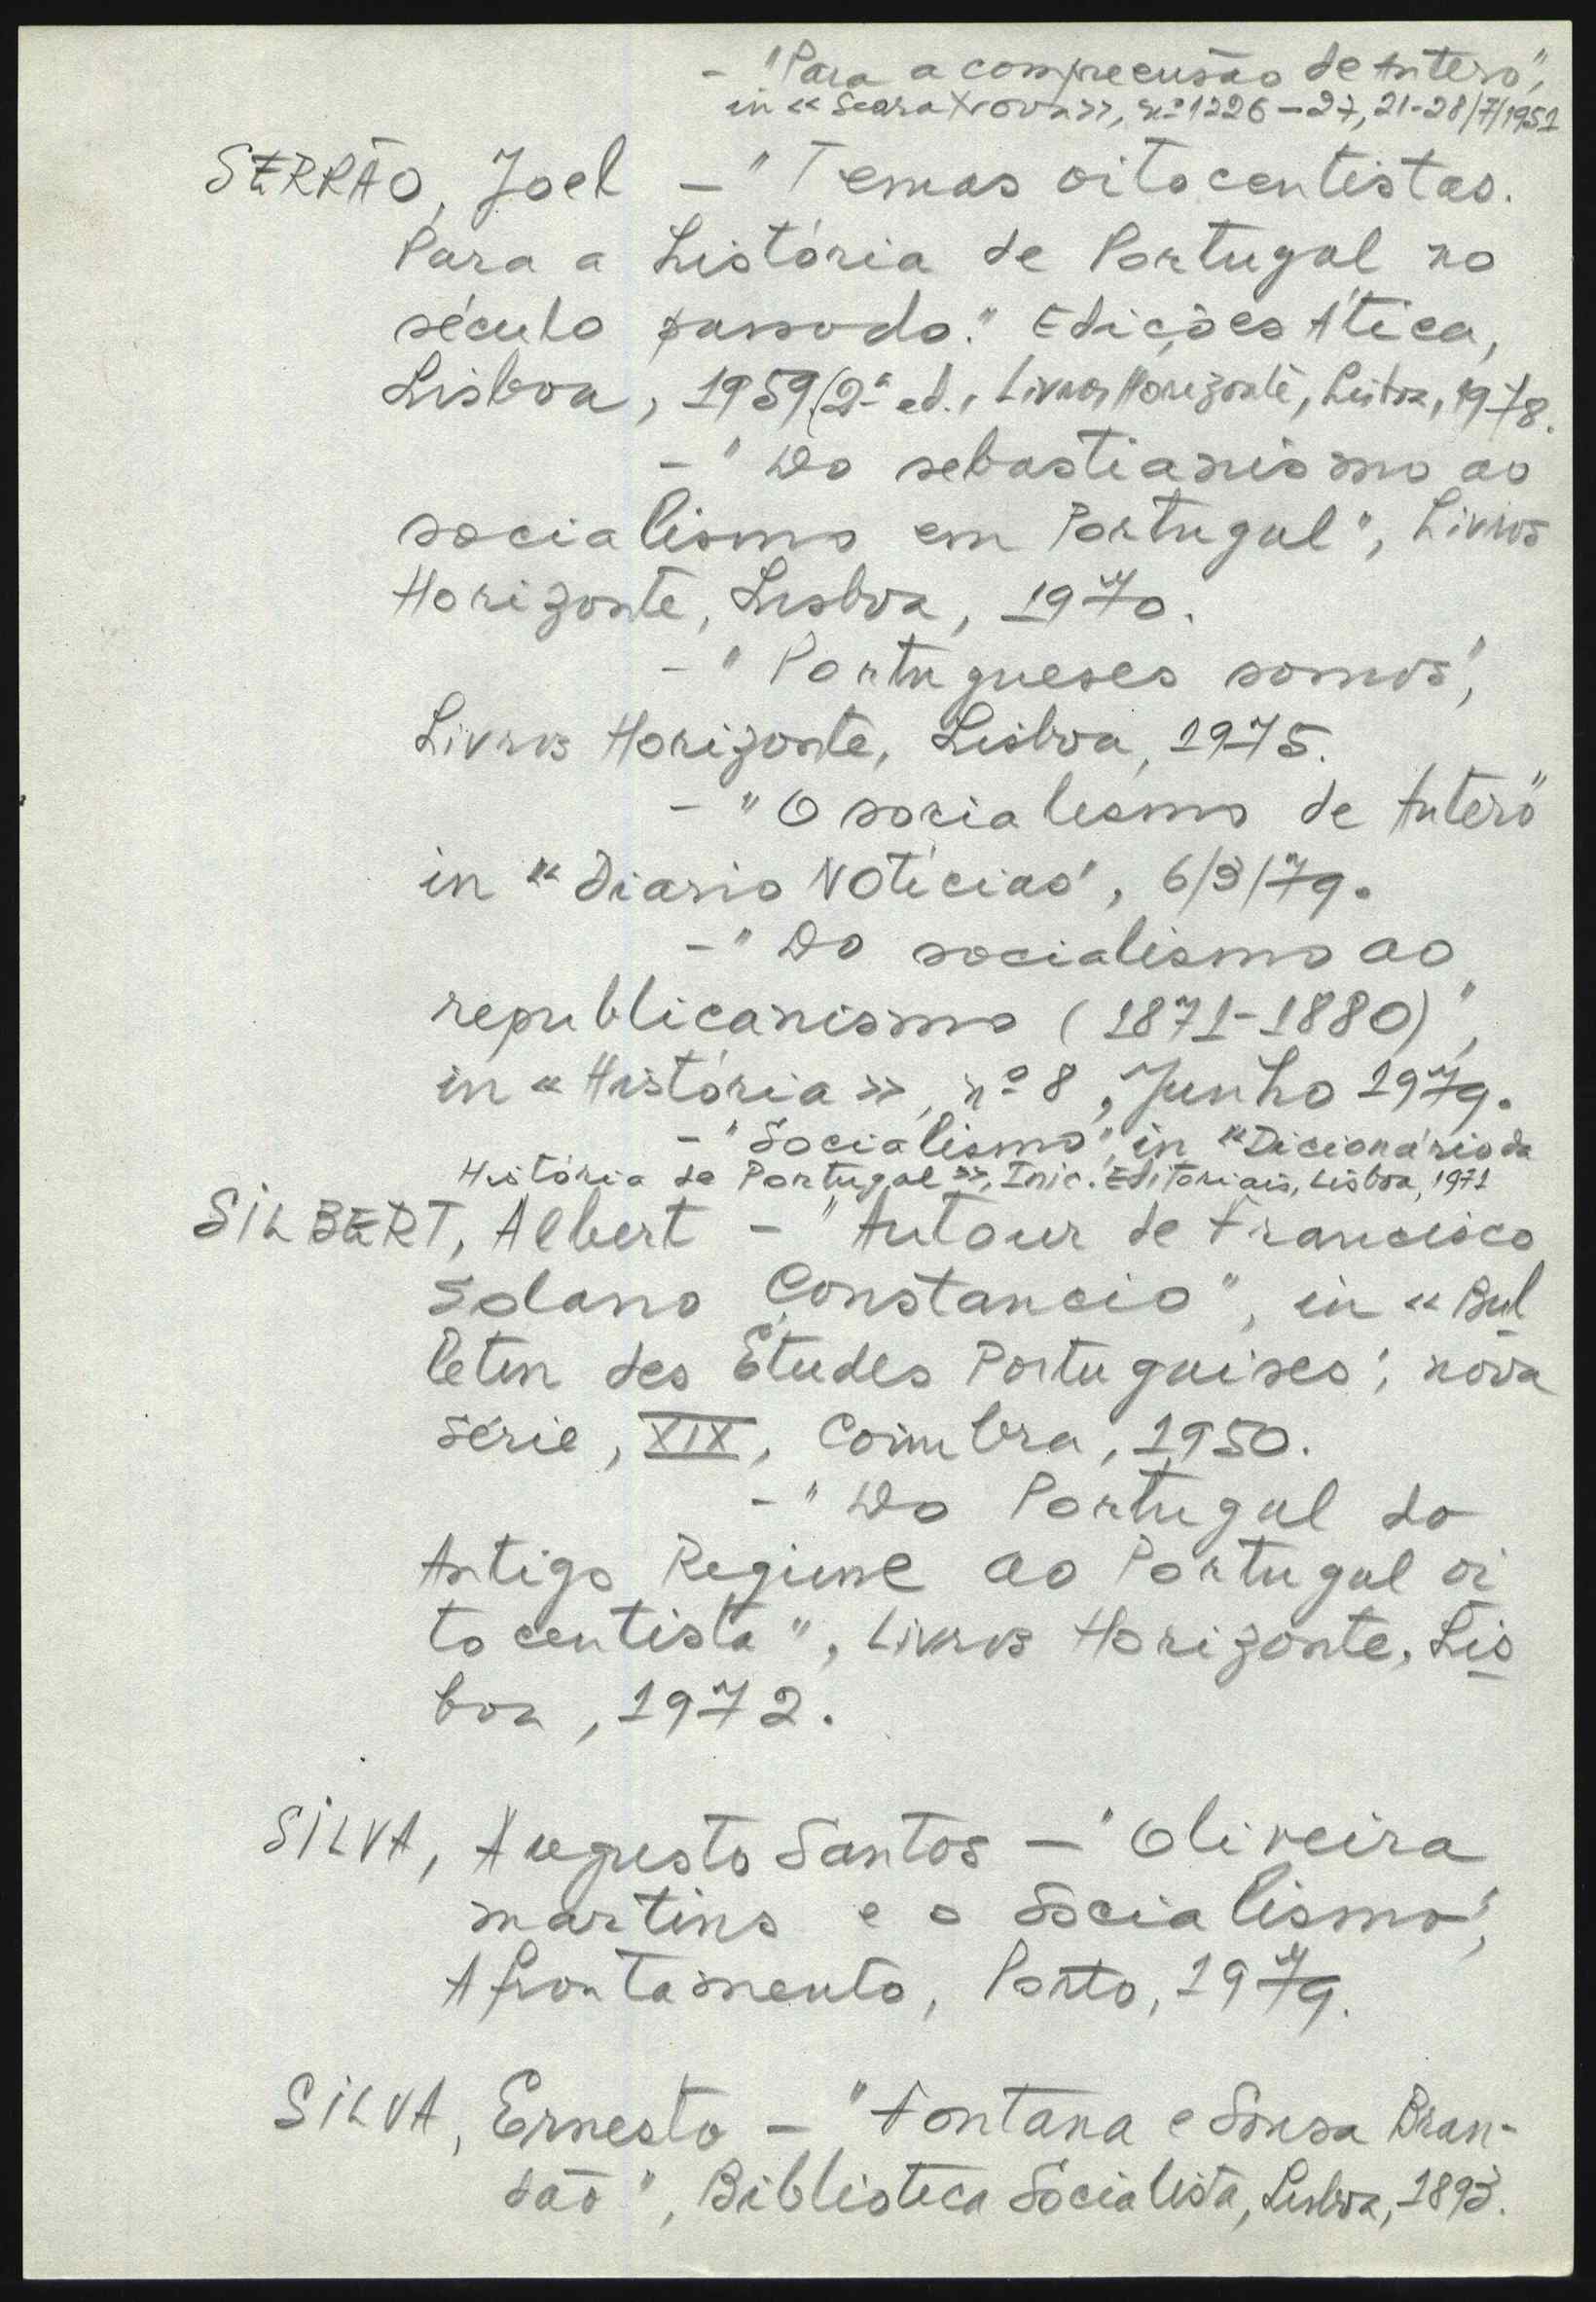 - "Para a compreensão de Antero",
in «Seara Nova», nº 1226-27, 21-28/7/1951
SERRÃO, Joel - "Temas oitocentistas.
Para a história de Portugal no
século passado." Edições Ática,
Lisboa, 1959 (2ª ed., Livros Horizonte, Lisboa, 1978.
- "Do sebastianismo ao
socialismo em Portugal", Livros
Horizonte, Lisboa, 1970.
- "Portugueses somos",
Livros Horizonte, Lisboa, 1975.
- "O socialismo de Antero"
in "Diario Notícias", 6/3/79.
- "Do socialismo ao
republicanismo (1871-1880)",
in «História», nº 8, Junho 1979.
- "Socialismo", in "Dicionário da
História de Portugal», Inic. Editoriais, Lisboa, 1971
SILBERT, Albert - "Autour de Francisco
Solano Constancio", in «Bul
letin des Études Portugaises", nova
série, XIX, Coimbra, 1950.
- "Do Portugal do
Antigo Regime ao Portugal oi
tocentista", Livros Horizonte, Lis
boa, 1972.
SILVA, Augusto Santos - "Oliveira
martins e o Socialismo",
Afrontamento, Porto, 1979.
SILVA, Ernesto - "Fontana e Sousa Bran-
dão", Biblioteca Socialista, Lisboa, 1893.